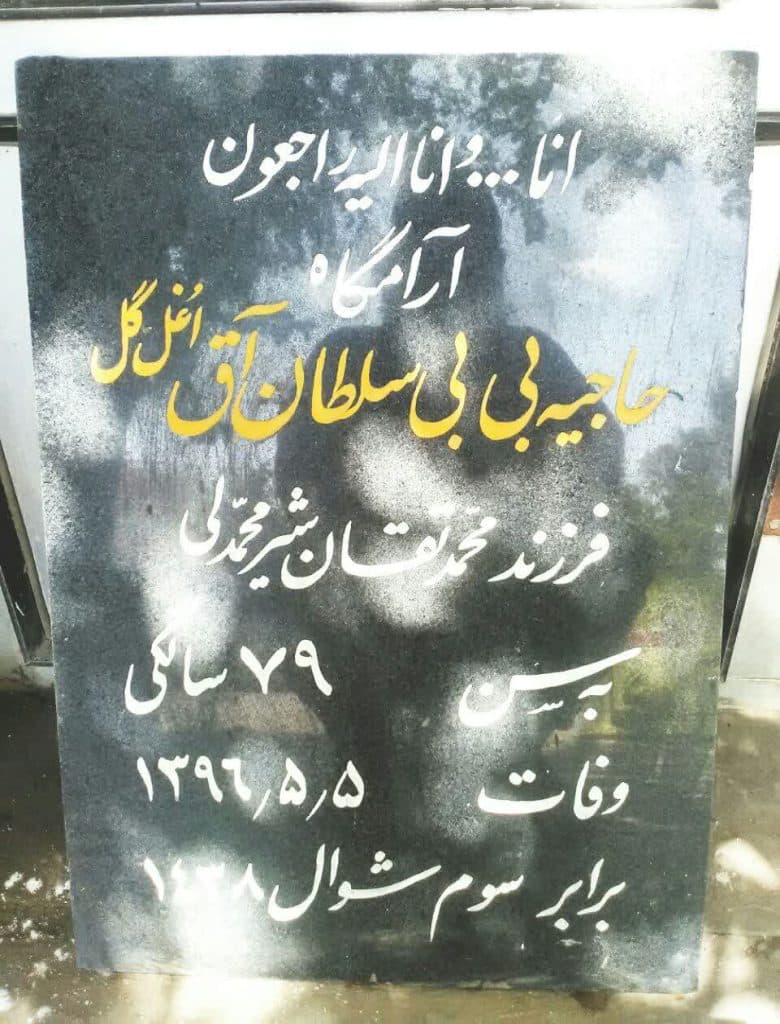 انا ... و انا الیه راجعون
آرامگاه
حاجیه بی بی سلطان آق اُغل گل
فرزند محمّد تقان شیر محمّدلی
به سن ۷۹ سالگی
وفات ۱۳۹۶٫۵٫۵
برابر سوم شوال ۱۴۳۸